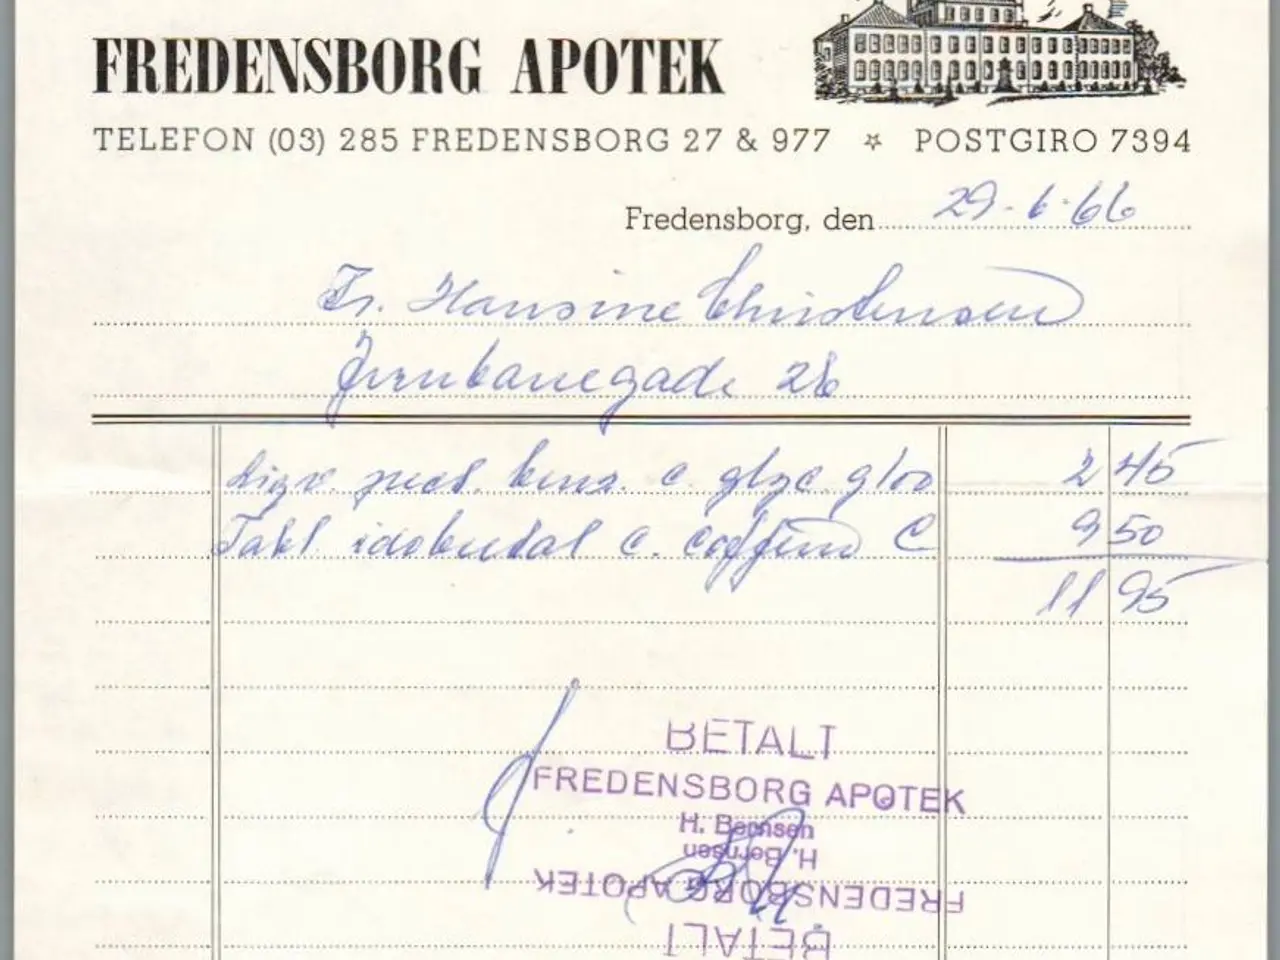 FREDENSBORG APOTEK
TELEFON (03) 285 FREDENSBORG 27 & 977 ☆ POSTGIRO 7394
Fredensborg, den 29-6-66
Fr. Hansine Christensen
Jernbanegade 28
c. glyc. 9/00 2 45
Tabl idobutal c. coffeino C 9 50
11 95
BETALT
FREDENSBORG APOTEK
H. Bernsen
H. Bernsen
FREDENSBORG APOTEK
BETALT